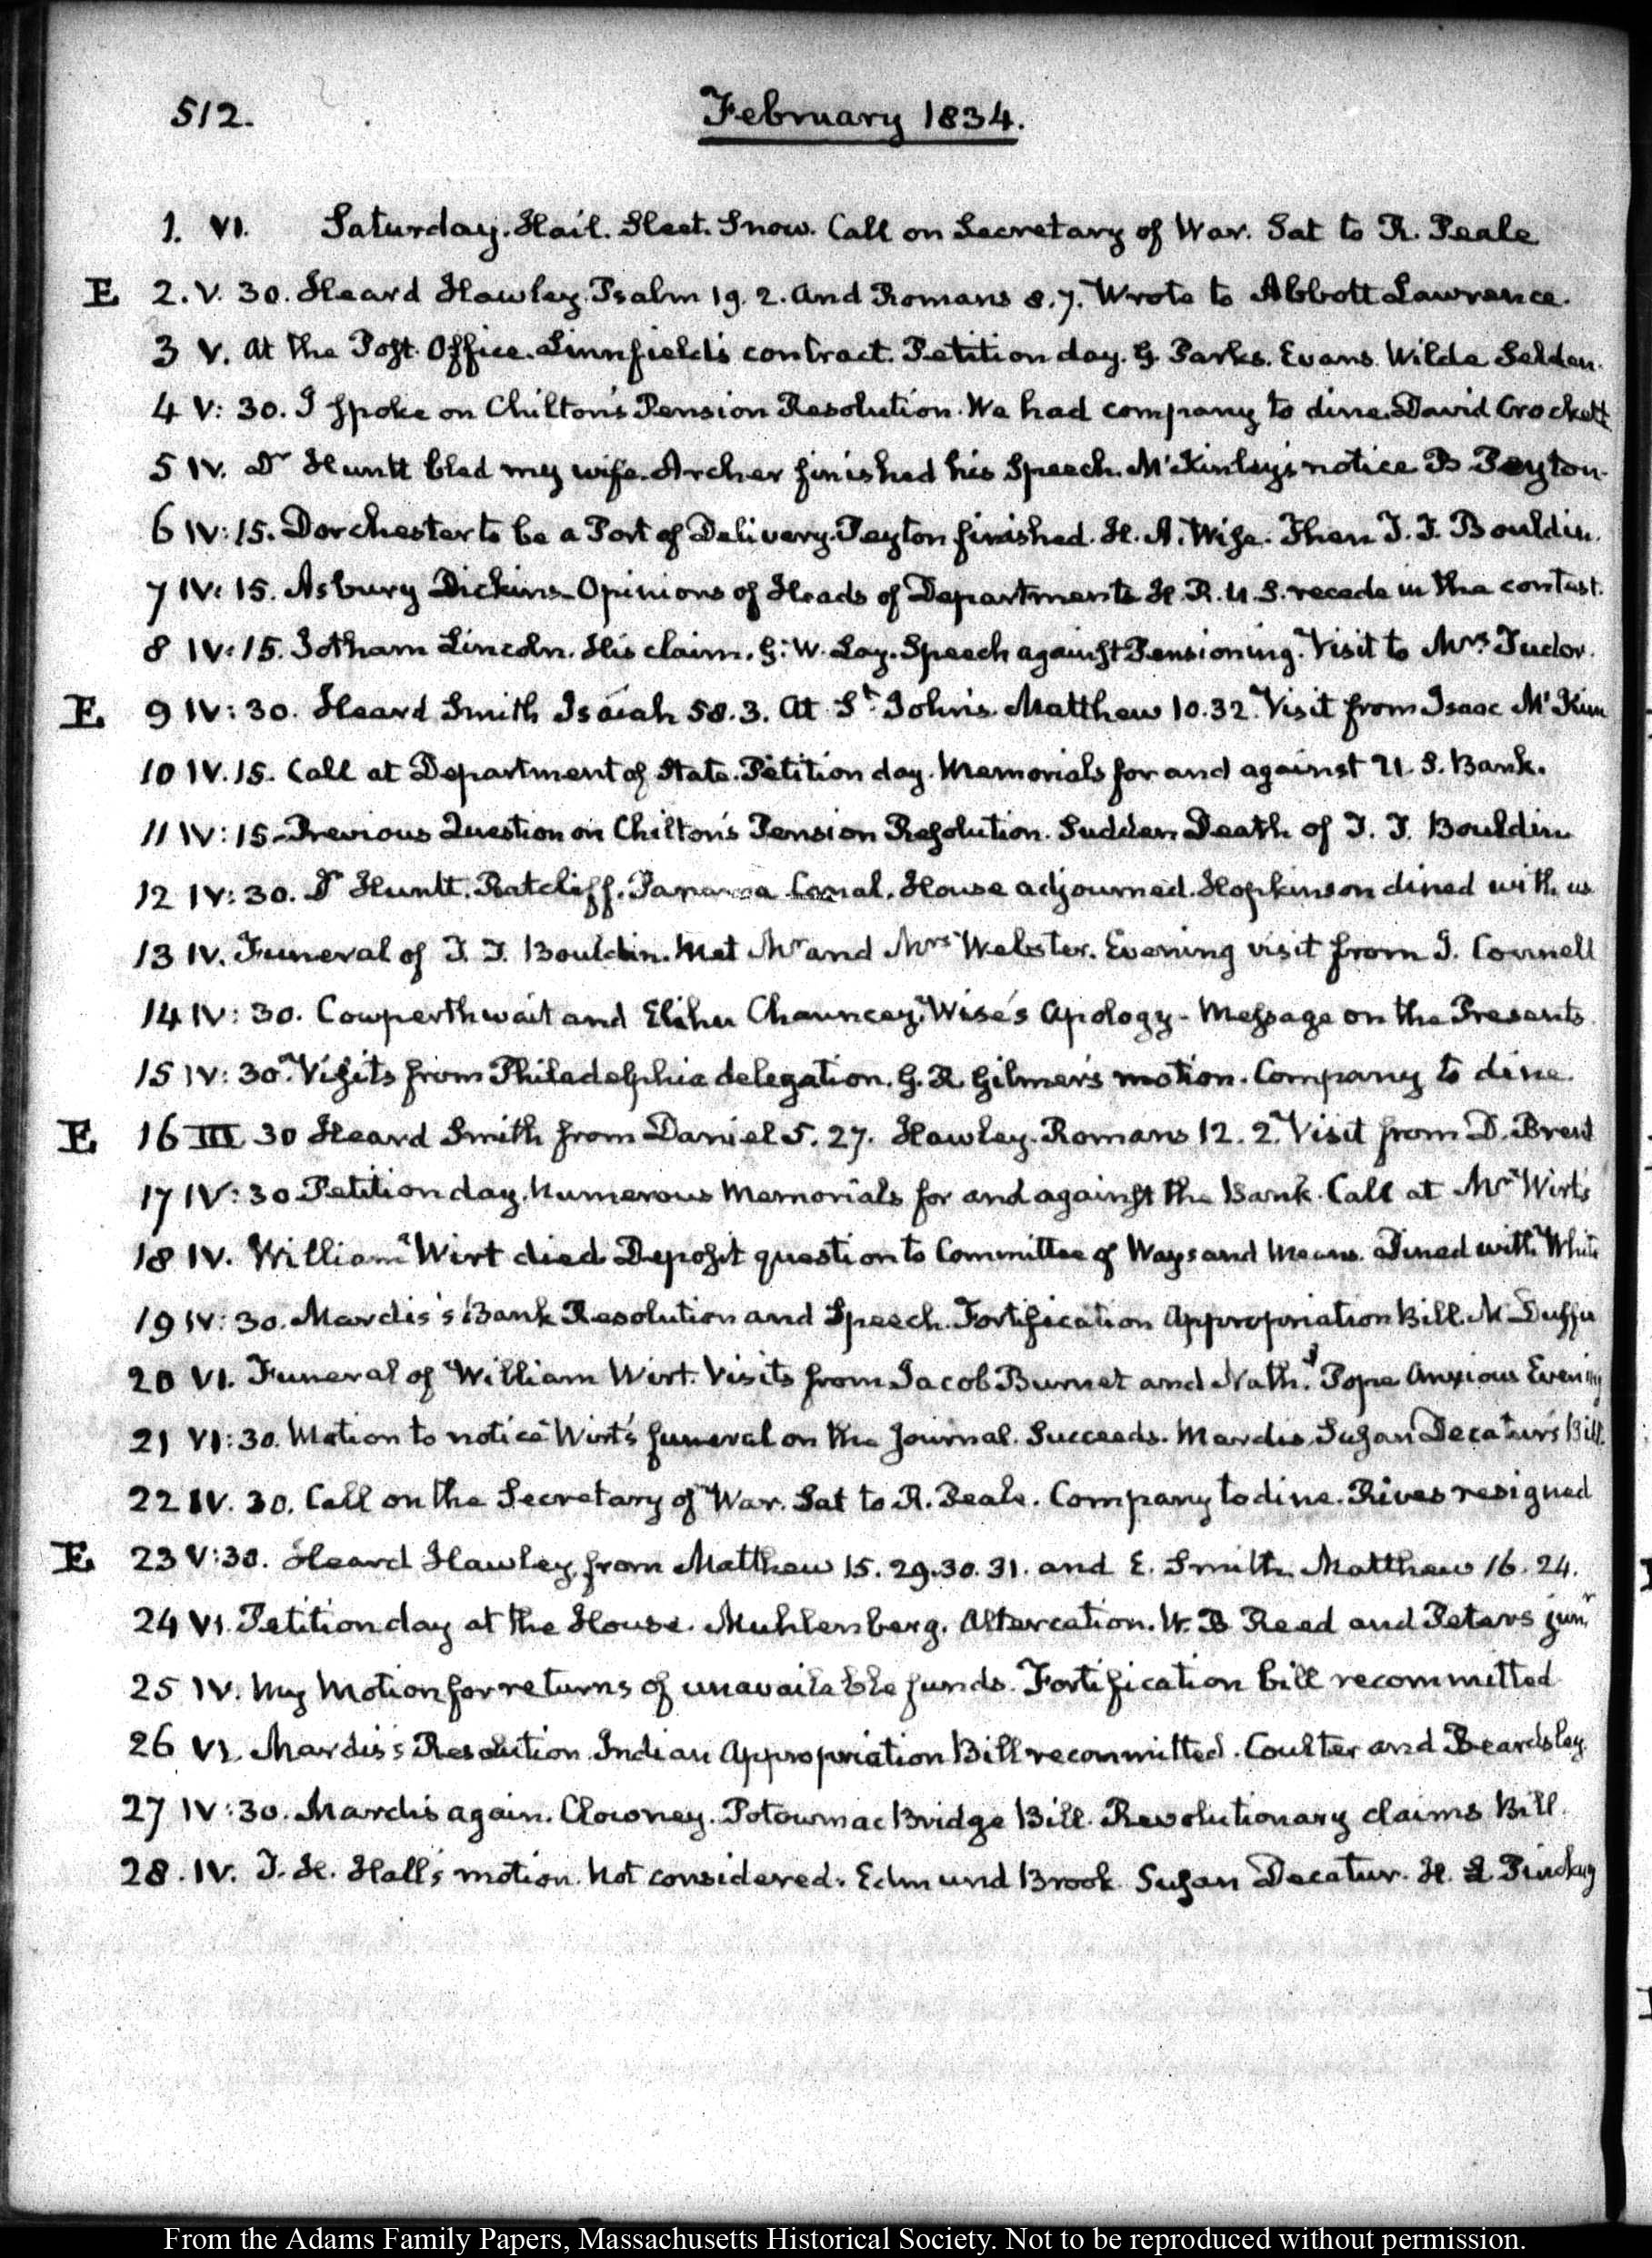 512.
February 1834.
1. VI. Saturday. Hail. Sleet. Snow. Call on Secretary of War. Sat to R. Peale
E 2. V. 30. Heard Hawley. Psalm 19. 2. and Romans 8. 7. Wrote to Abbott Lawrence.
3 V. At the Post Office. Linnfield's contract. Petition day. G. Parks. Evans. Wilde Selden.
4 V: 30. I spoke on Chilton's Pension Resolution. We had company to dine. David Crockett
5 IV. Dr Huntt bled my wife. Archer finished his Speech. McKinley's notice B Peyton.
6 IV: 15. Dorchester to be a Port of Delivery. Peyton finished. H. A. Wise. Then T. T. Bouldin.
7 IV: 15. Asbury Dickins. Opinions of Heads of Departments H. R. U. S. recede in the contest.
8 IV: 15. Jotham Lincoln. His claim. G. W. Lay. Speech against Pensioning. Visit to Mrs Tudor.
E 9 IV: 30. Heard Smith Isaiah 58. 3. At St John's. Matthew 10. 32. Visit from Isaac McKim
10 IV. 15. Call at Department of State. Petition day. Memorials for and against U. S. Bank.
11 IV: 15. Previous Question on Chilton's Pension Resolution. Sudden Death of T. T. Bouldin
12 IV: 30. Dr Huntt. Ratcliff. Panama Canal. House adjourned. Hopkinson dined with us
13 IV. Funeral of T. T. Bouldin. Met Mr and Mrs Webster. Evening visit from J. Connell
14 IV: 30. Cowperthwait and Elihu Chauncey. Wise's Apology - Message on the Presents.
15 IV: 30. Visits from Philadelphia delegation. G. R. Gilmer's motion. Company to dine.
E 16 III 30 Heard Smith from Daniel 5. 27. Hawley. Romans 12. 2. Visit from D. Brent
17 IV: 30 Petition day. Numerous Memorials for and against the Bank. Call at Mr Wirt's
18 IV. William Wirt died Deposit question to Committee of Ways and Means. Dined with White
19 IV: 30. Mardis's Bank Resolution and Speech. Fortification Appropriation Bill. McDuffie
20 VI. Funeral of William Wirt. Visits from Jacob Burnet and Nathl Pope Anxious Evening
21 VI: 30. Motion to notice Wirt's funeral on the Journal. Succeeds. Mardis. Susan Decatur's Bill.
22 IV. 30. Call on the Secretary of War. Sat to R. Peale. Company to dine. Rives resigned
E 23 V: 30. Heard Hawley from Matthew 15. 29. 30. 31. and E. Smith. Matthew 16. 24.
24 VI. Petition day at the House. Muhlenberg. Altercation. W. B Reed and Peters junr
25 IV. My Motion for returns of unavailable funds. Fortification bill recommitted
26 VI. Mardis's Resolution. Indian Appropriation Bill recommitted. Coulter and Beardsley.
27 IV: 30. Mardis again. Clowney. Potowmac Bridge Bill. Revolutionary claims Bill.
28. IV. T. H. Hall's motion. Not considered. Edmund Brook. Susan Decatur. H. L Pinckney
From the Adams Family Papers, Massachusetts Historical Society. Not to be reproduced without permission.